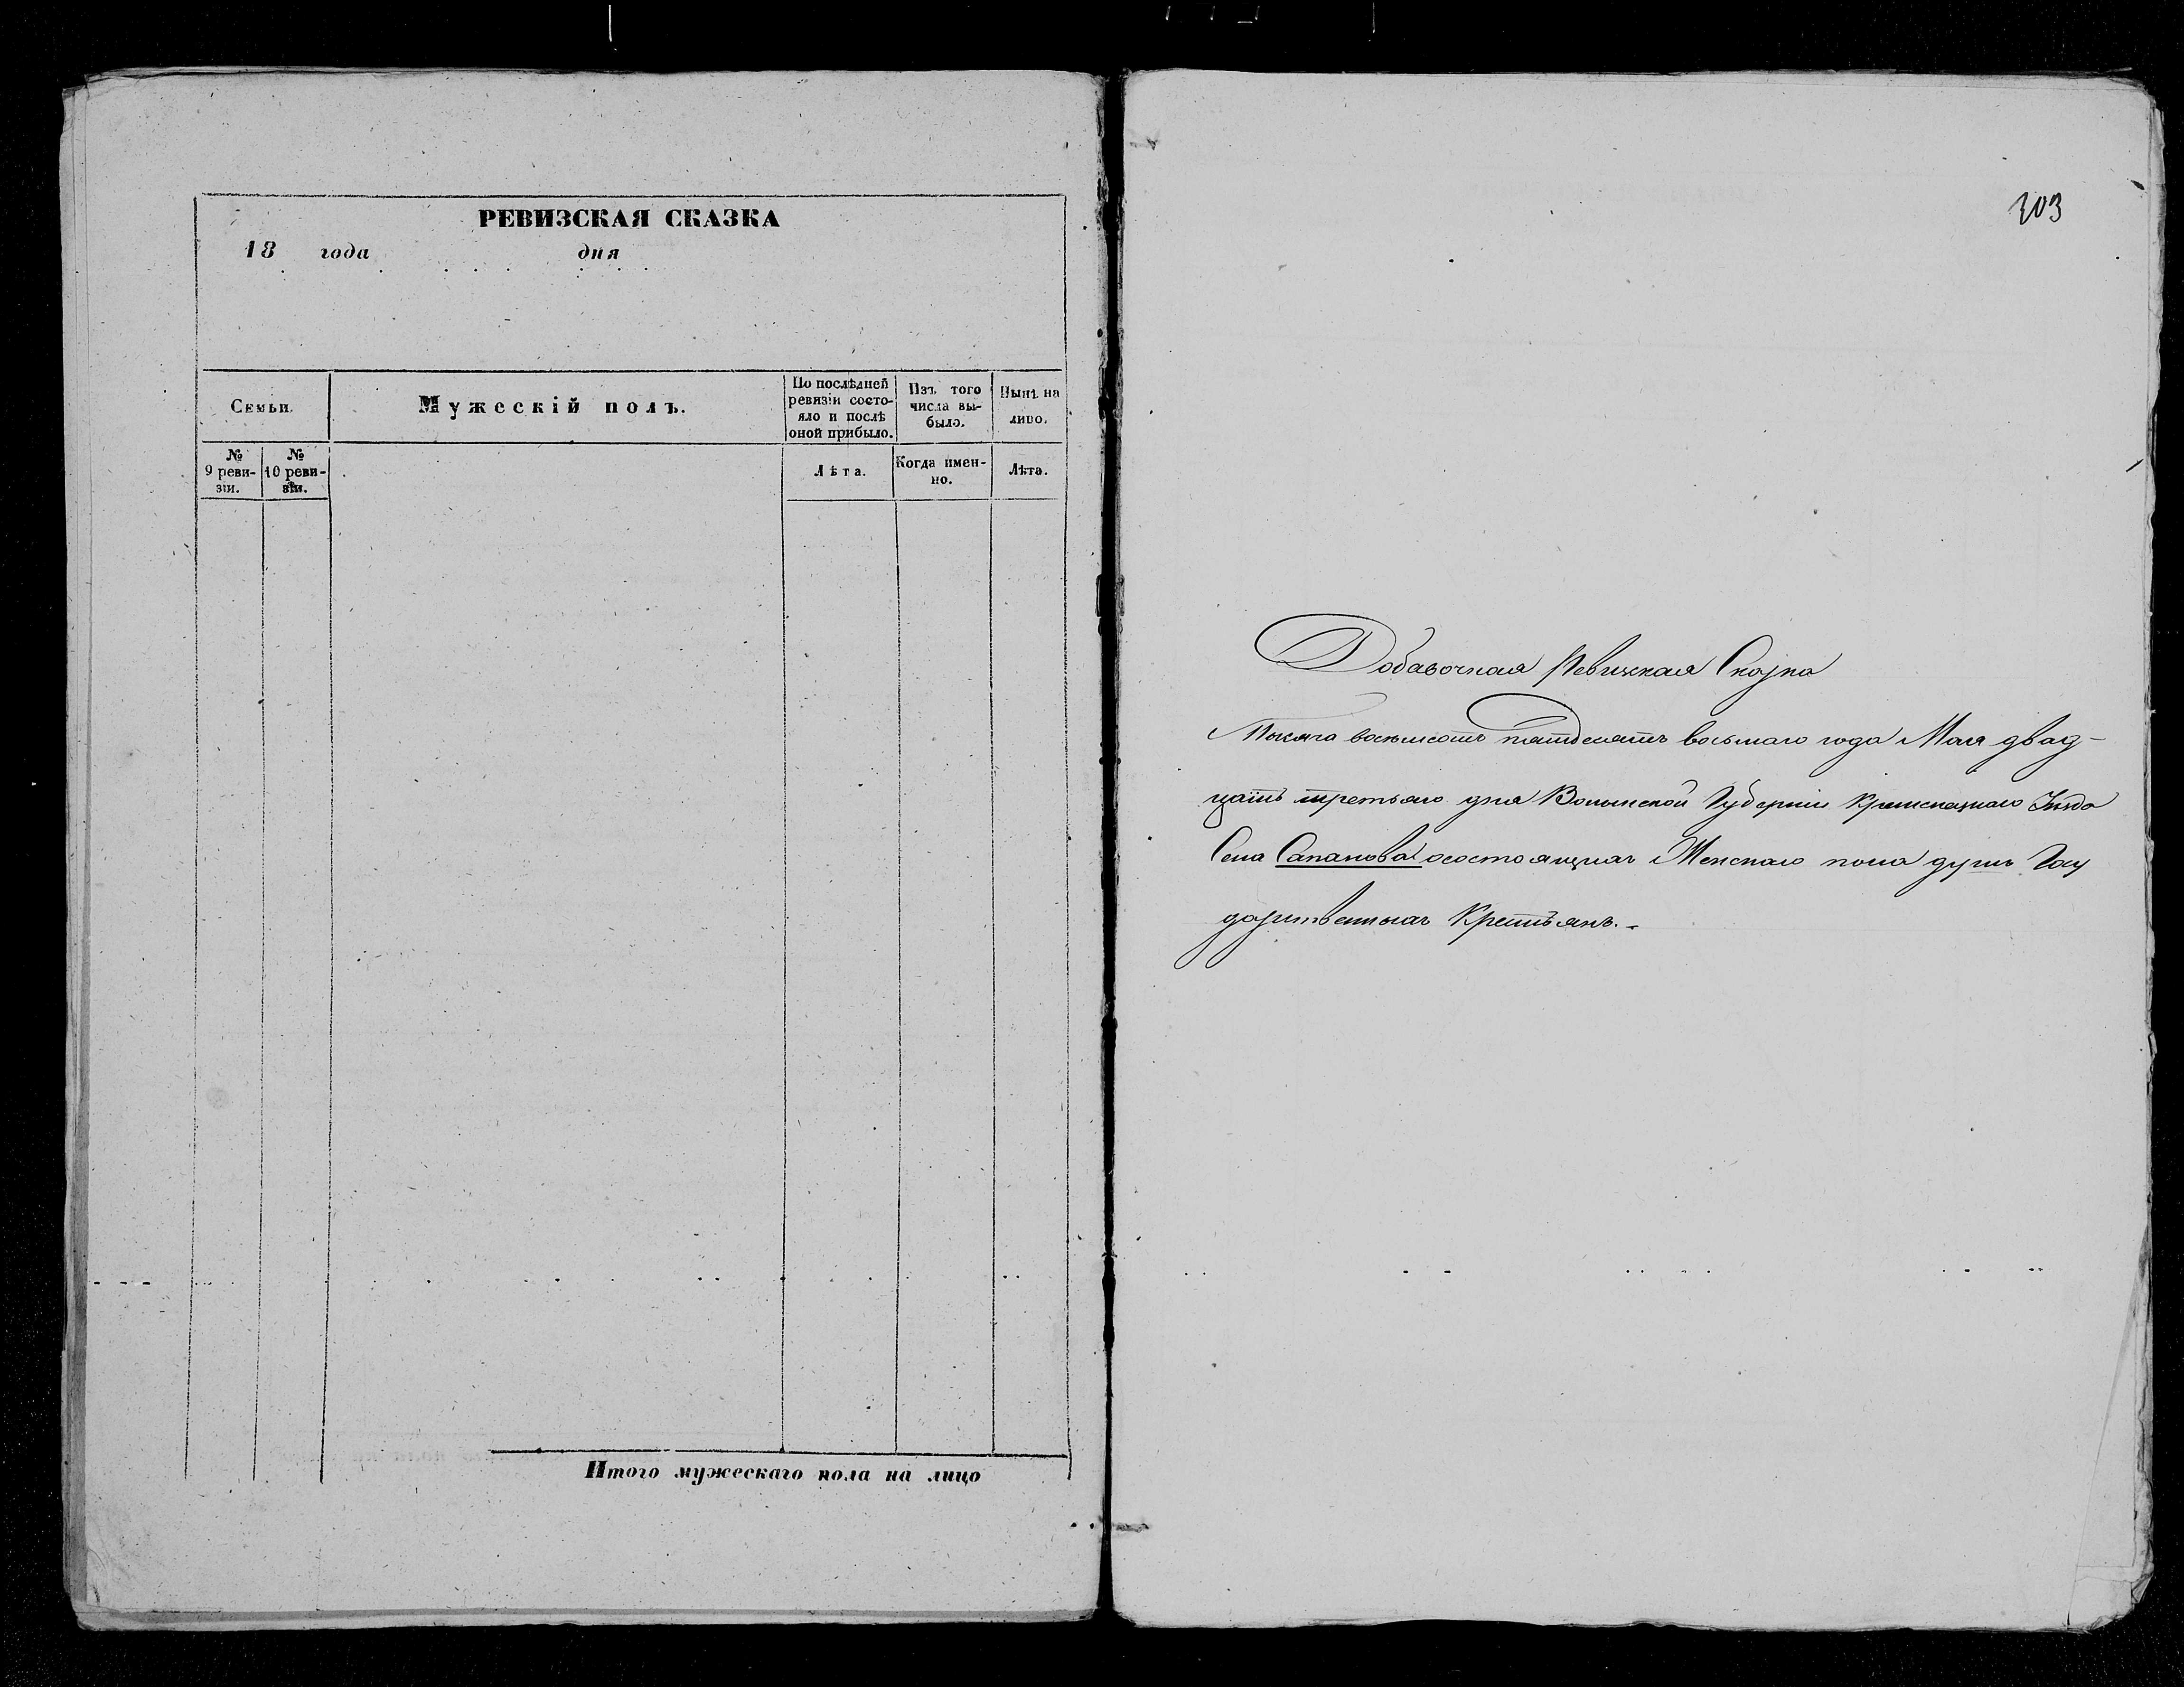 РЕВИЗСКАЯ СКАЗКА
18 года дня
Семьи.
Мужескій полъ.
По послѣдней ревизіи состояло и послѣ оной прибыло.
Изъ того числа выбыло.
Нынѣ на лицо.
№ 9 ревизіи.
№ 10 ревизіи.
Лѣта.
Когда именно.
Лѣта.
Итого мужескаго пола на лицо
303
Добавочная Ревижкая Сказка
Тысяча восьмсотъ пятдесятъ восьмаго года Мая двад-
цать третьяго дня Волынской Губерніи Кременецкаго Уѣзда
Села Сапанова о состоящихъ Женскаго пола душъ Госу
дарственныхъ Крестьянъ.